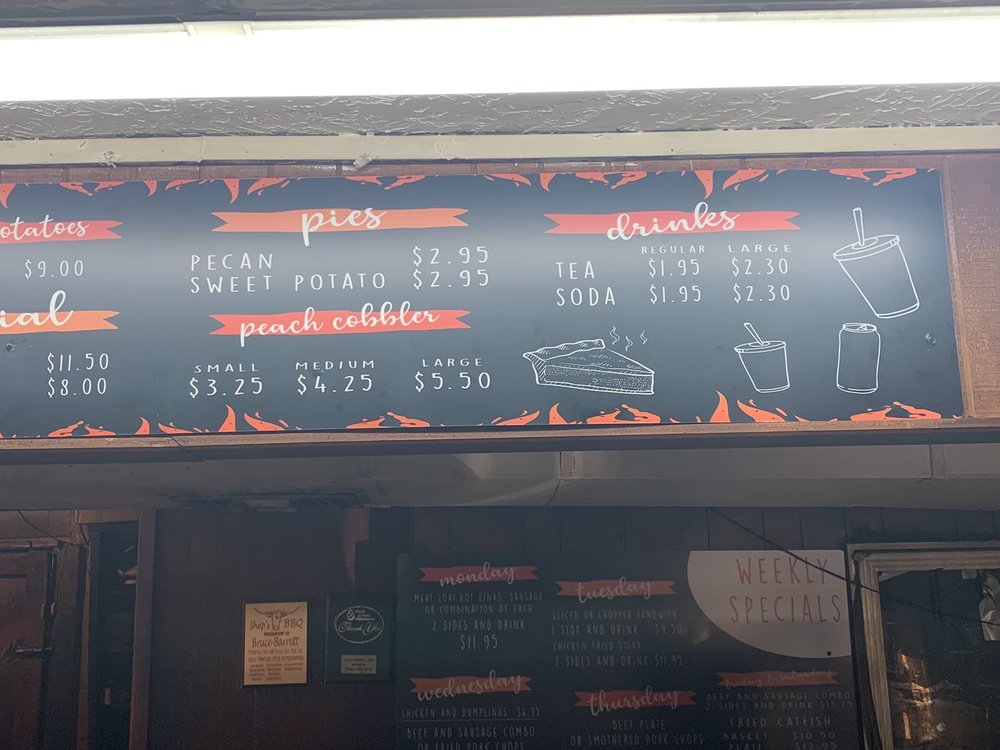 otatoes
$9.00
ial
$11.50
$8.00
pies
PECAN $2.95
SWEET POTATO $2.95
peach cobbler
SMALL MEDIUM LARGE
$3.25 $4.25 $5.50
drinks
REGULAR LARGE
TEA $1.95 $2.30
SODA $1.95 $2.30
Shep's BBQ
PRESENTED TO
Bruce Barrett
Thanks for all you do for us
your friends and employees
Thank You
WEEKLY
SPECIALS
monday
MEAT LOAF HOT LINKS, SAUSAGE
OR COMBINATION OF EACH
2 SIDES AND DRINK
$11.95
tuesday
SLICED OR CHOPPED SANDWICH
1 SIDE AND DRINK $9.50
CHICKEN FRIED STEAK
2 SIDES AND DRINK $11.95
wednesday
CHICKEN AND DUMPLINGS $6.95
BEEF AND SAUSAGE COMBO
OR FRIED PORK CHOPS
thursday
BEEF PLATE
OR SMOTHERED PORK CHOPS
friday & saturday
BEEF AND SAUSAGE COMBO
2 SIDES AND DRINK $13.75
FRIED CATFISH
BASKET $10.50
PLATE